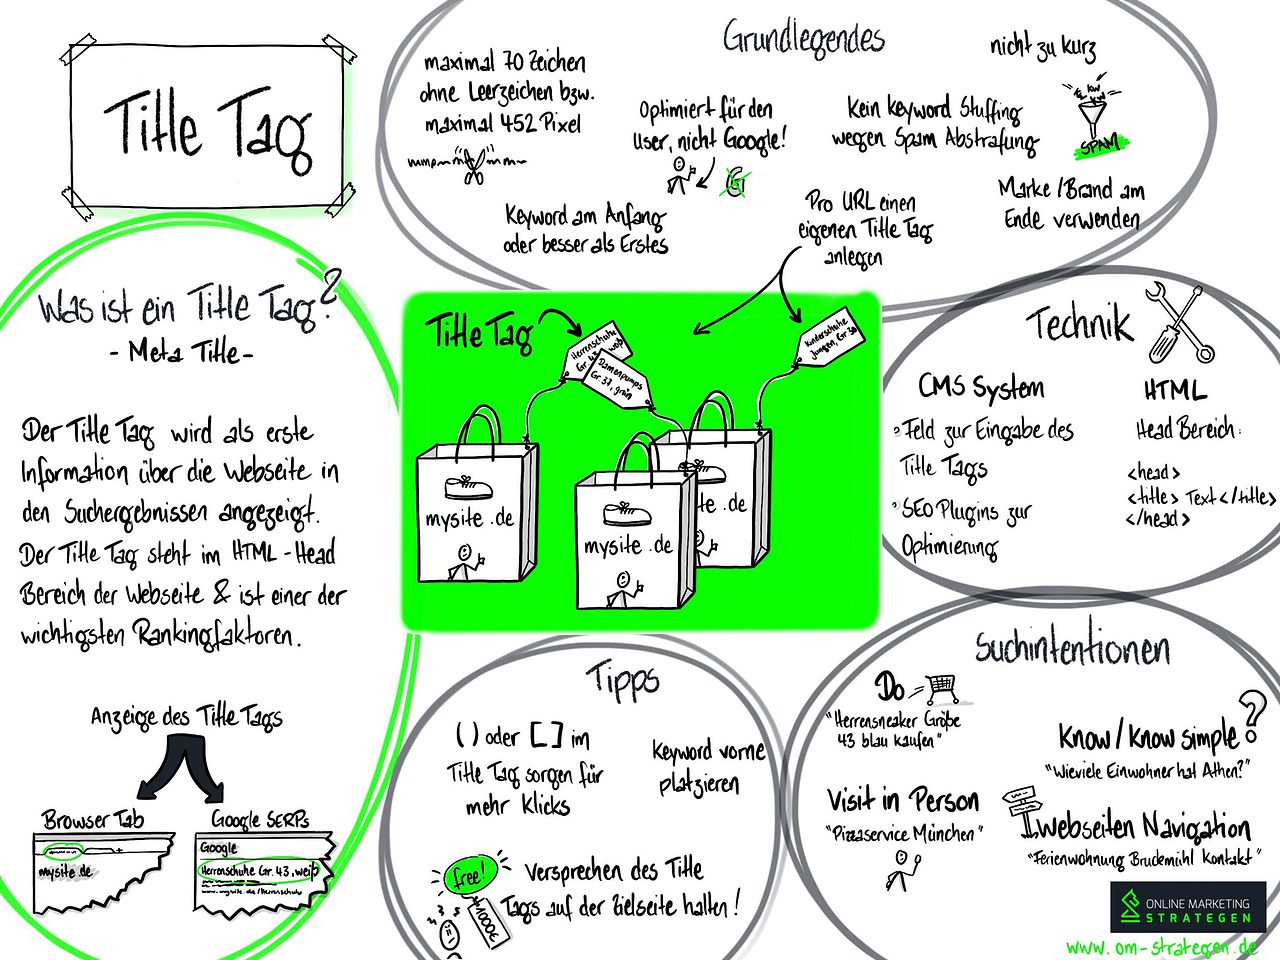 Title Tag
Was ist ein Title Tag?
- Meta Title -
Der Title Tag wird als erste
Information über die Webseite in
den Suchergebnissen angezeigt.
Der Title Tag steht im HTML-Head
Bereich der Webseite & ist einer der
wichtigsten Rankingfaktoren.
Anzeige des Title Tags
Browser Tab
mysite.de
Google SERPs
Google
Herrenschuhe Gr. 43, weiß
www.mysite.de/Herrenschuhe
Grundlegendes
maximal 70 Zeichen
ohne Leerzeichen bzw.
maximal 452 Pixel
Optimiert für den
User, nicht Google!
G
nicht zu kurz
Kein Keyword Stuffing
wegen Spam Abstrafung
KW
SPAM
Keyword am Anfang
oder besser als Erstes
Pro URL einen
eigenen Title Tag
anlegen
Marke/Brand am
Ende verwenden
Title Tag
Herrenschuhe
Gr. 43, weiß
Damenpumps
Gr 37, grün
Kinderschuhe
Jungen, Gr 30
mysite.de
mysite.de
te.de
Technik
CMS System
Feld zur Eingabe des
Title Tags
SEO Plugins zur
Optimierung
HTML
Head Bereich:
<head>
<title> Text </title>
</head>
Tipps
( ) oder [ ] im
Title Tag sorgen für
mehr Klicks
Keyword vorne
platzieren
free!
1000€
Versprechen des Title
Tags auf der Zielseite halten!
Suchintentionen
Do
"Herrensneaker Größe
43 blau kaufen"
Know/Know simple
"Wieviele Einwohner hat Athen?"
Visit in Person
"Pizzaservice München"
Webseiten Navigation
"Ferienwohnung Brudemühl Kontakt"
ONLINE MARKETING
STRATEGEN
www.om-strategen.de